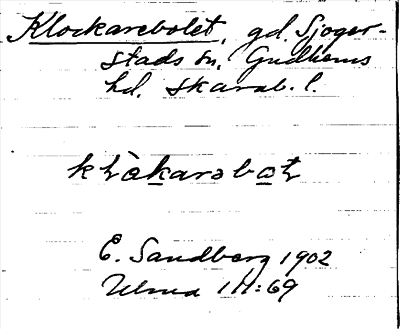 Klockarebolet, gd. Sjoger-
stads sn, Gudhems
hd. Skarab. l.
E. Sandberg 1902
Ulma 111:69